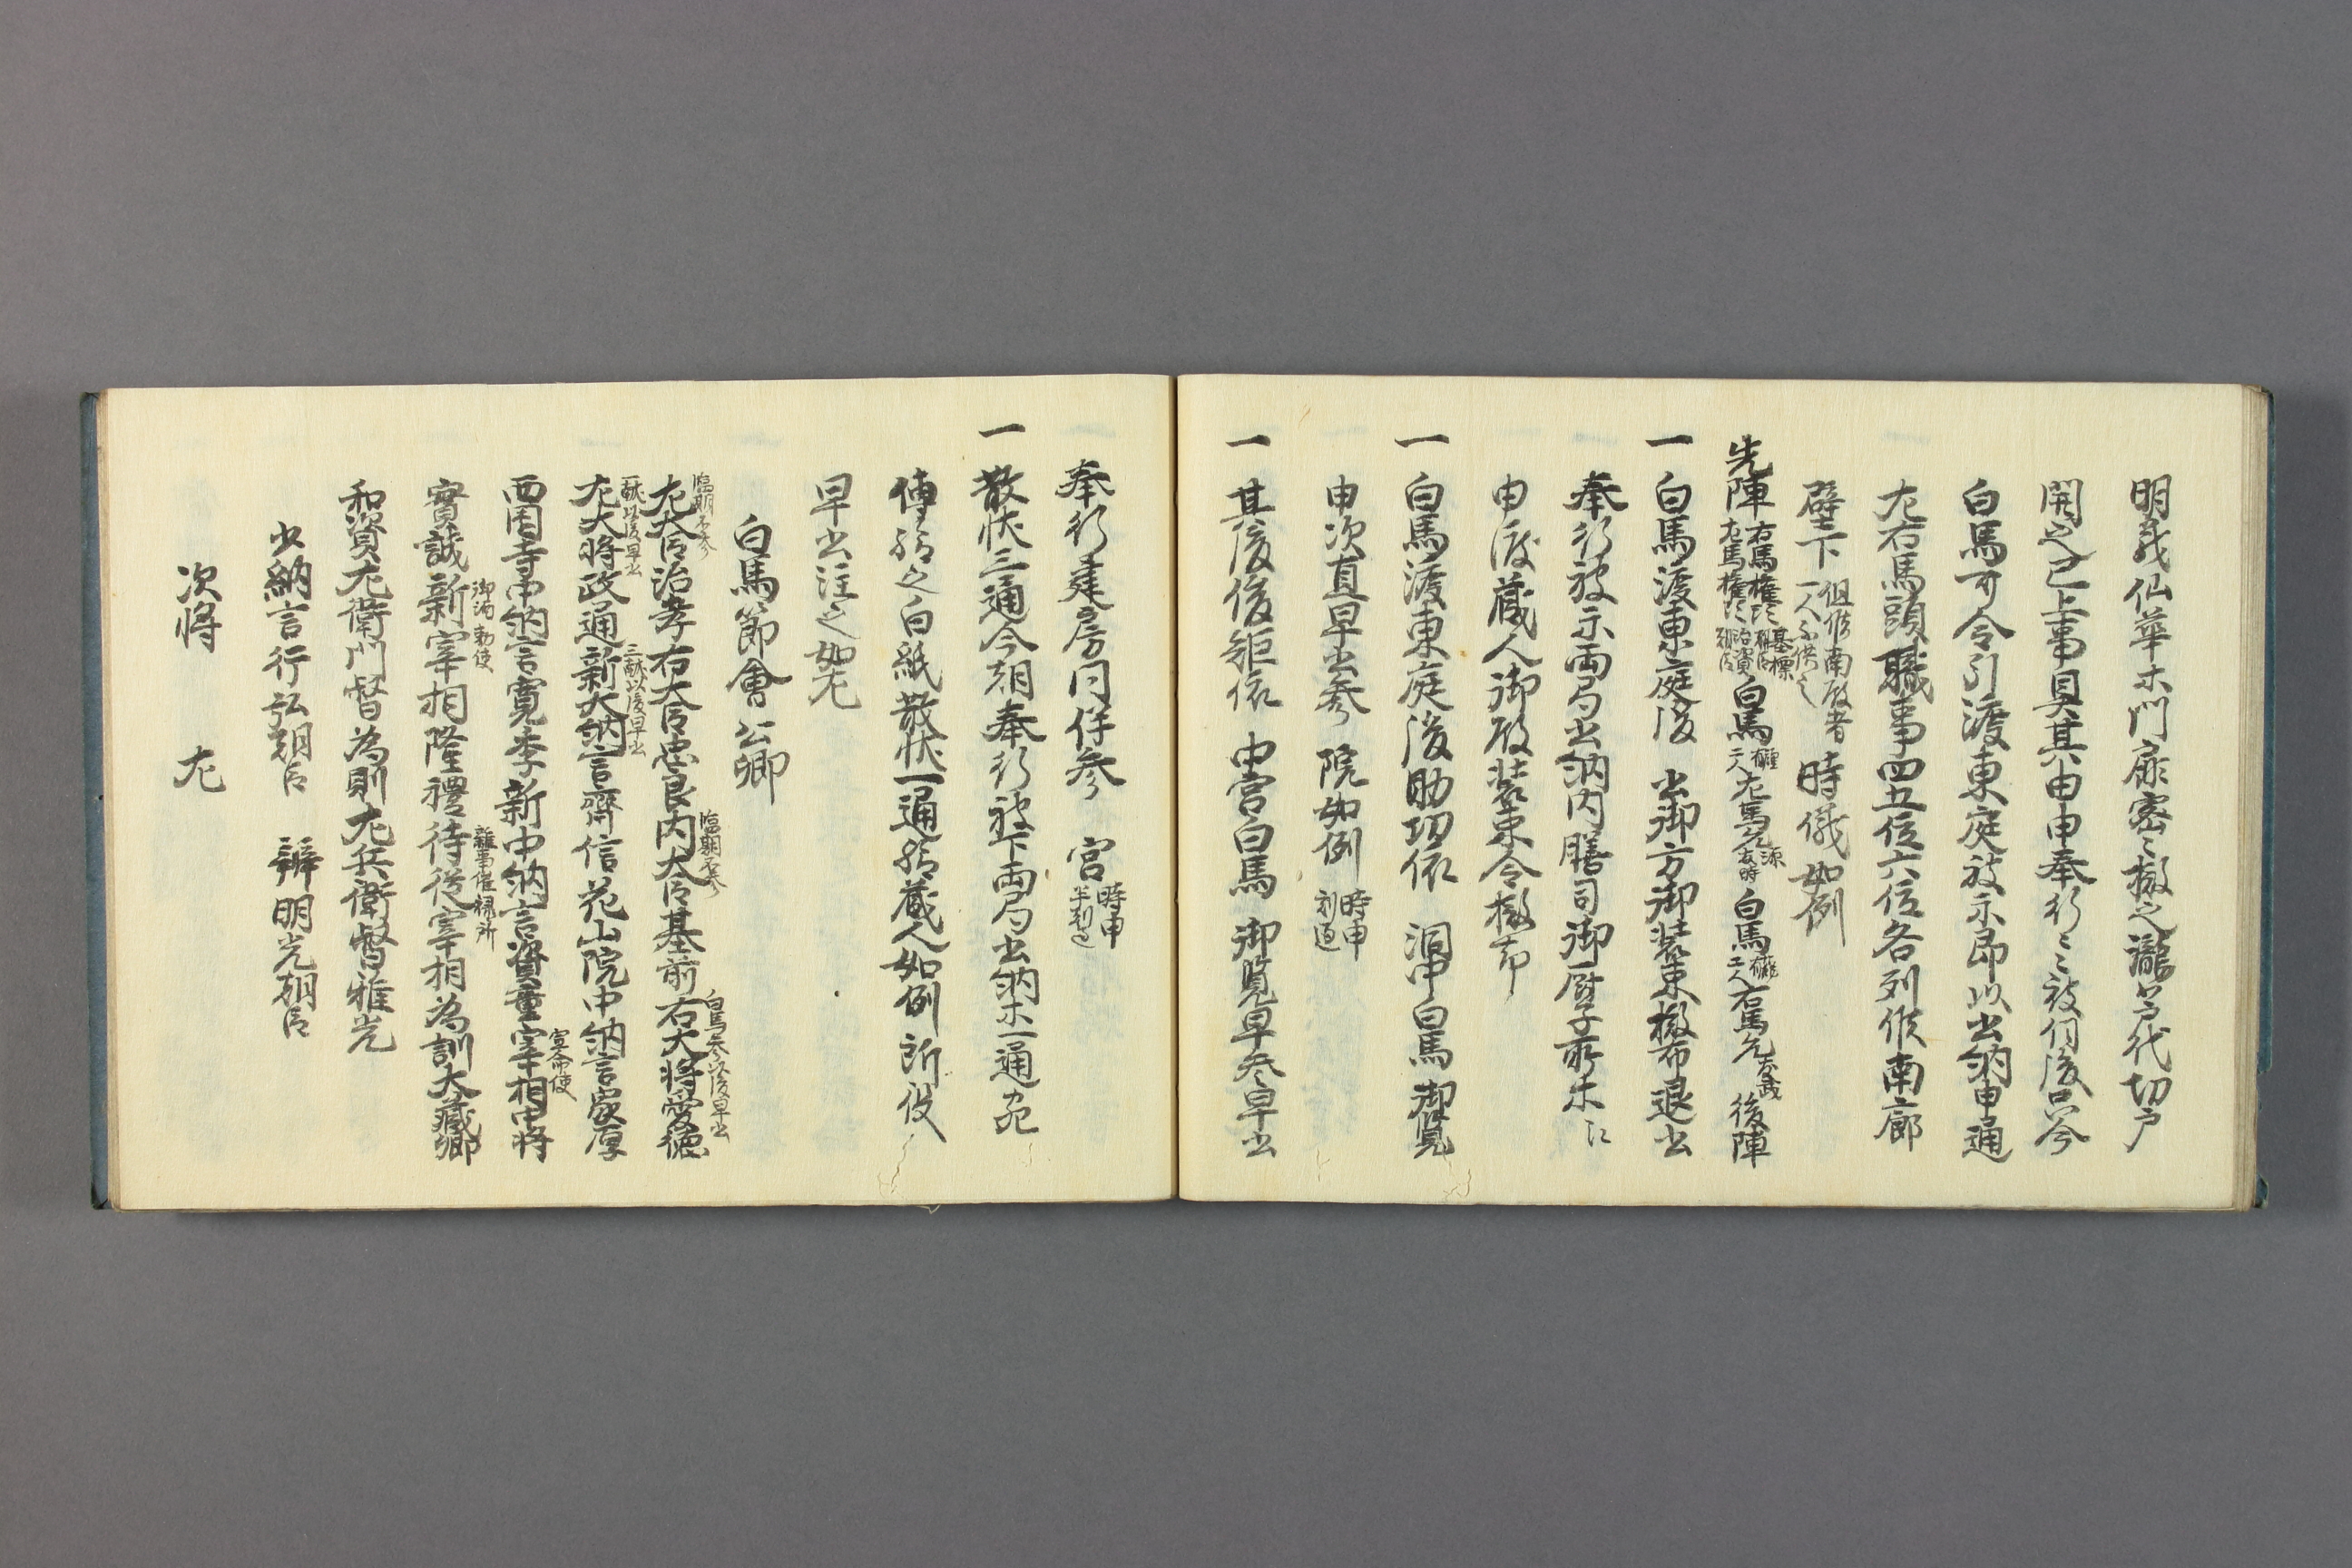 明義仙華木門扉密々撤之瀧口戸代切戸
開之已上事具其由申奉行々被伺後只今
白馬可令引渡東庭被示即以出納申通
左右馬頭職事四五位六位各列候南廊
壁下但候南殿者一人不候之時儀如例
先陣右馬権頭基標朝臣左馬権頭治資朝臣白馬二疋左馬允源春時白馬二疋右馬允 後陣
一 白馬渡東庭後 出御方御装束撤却退出
奉行被示両局出納内膳司御厨子所木江
申渡蔵人御殿装束令撤却
一 白馬渡東庭後助功依 洞中白馬御覧
申次直早出参 院如例時申刻過
一 其後後矩依 中宮白馬 御覧早参早出
奉行建房同伴参 宮時申半刻過
一 散状三通今朝奉行被下両局出納木一通宛
傳給之白紙散状一通給蔵人如例所役
早出注之如左
白馬節會 公卿
臨期不参
左大臣治孝右大臣忠良内大臣基前右大将愛徳
臨期不参
白馬奏以後早出
一献以後早出
左大将政通新大納言齊信花山院中納言家厚
三献以後早出
西園寺中納言寛季新中納言資董宰相中将
宣命使
實誠新宰相隆禮侍従宰相為訓大蔵卿
御酒勅使
雑事催禄所
和資左衛門督為則左兵衛督雅光
少納言行弘朝臣 辨明光朝臣
次将 左